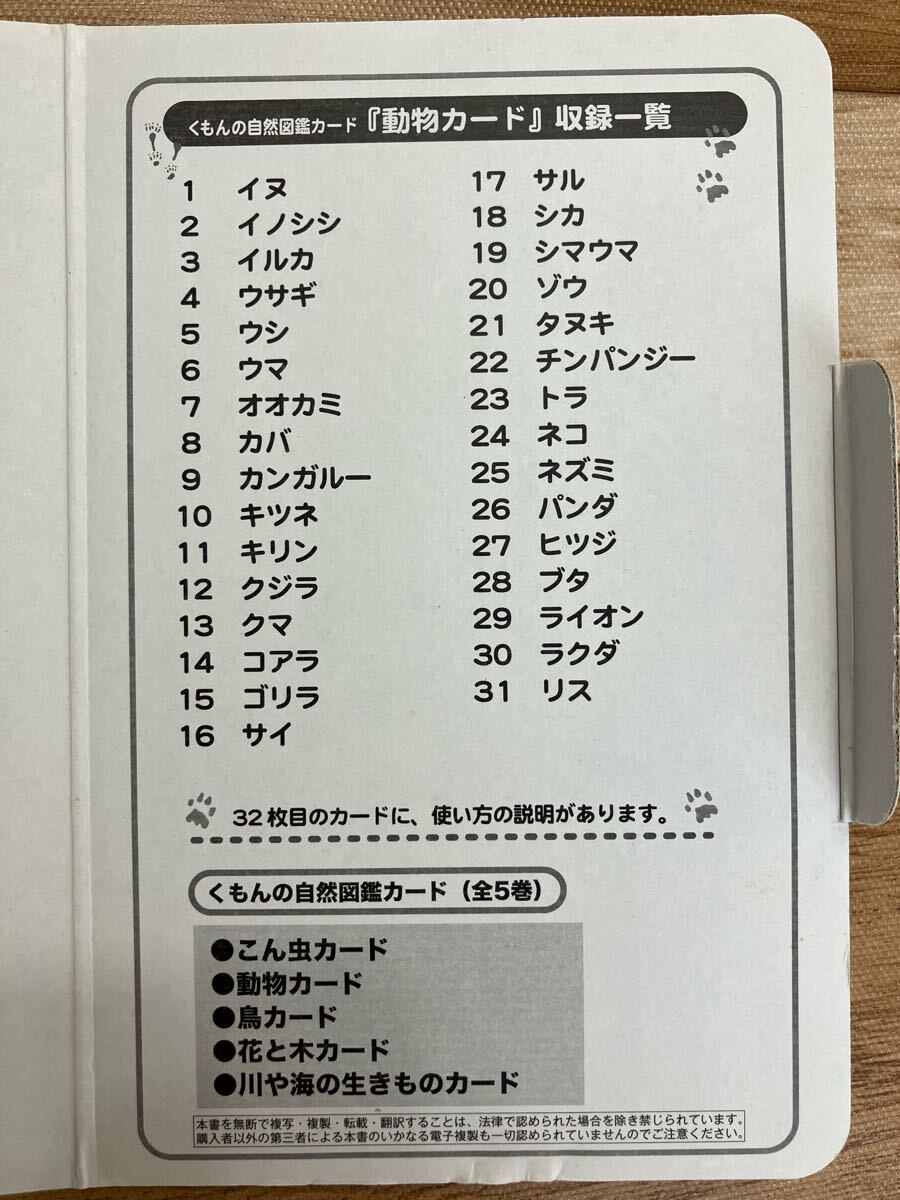 くもんの自然図鑑カード『動物カード』収録一覧
1 イヌ
2 イノシシ
3 イルカ
4 ウサギ
5 ウシ
6 ウマ
7 オオカミ
8 カバ
9 カンガルー
10 キツネ
11 キリン
12 クジラ
13 クマ
14 コアラ
15 ゴリラ
16 サイ
17 サル
18 シカ
19 シマウマ
20 ゾウ
21 タヌキ
22 チンパンジー
23 トラ
24 ネコ
25 ネズミ
26 パンダ
27 ヒツジ
28 ブタ
29 ライオン
30 ラクダ
31 リス
32枚目のカードに、使い方の説明があります。
くもんの自然図鑑カード（全5巻）
●こん虫カード
●動物カード
●鳥カード
●花と木カード
●川や海の生きものカード
本書を無断で複写・複製・転載・翻訳することは、法律で認められた場合を除き禁じられています。
購入者以外の第三者による本書のいかなる電子複製も一切認められていませんのでご注意ください。